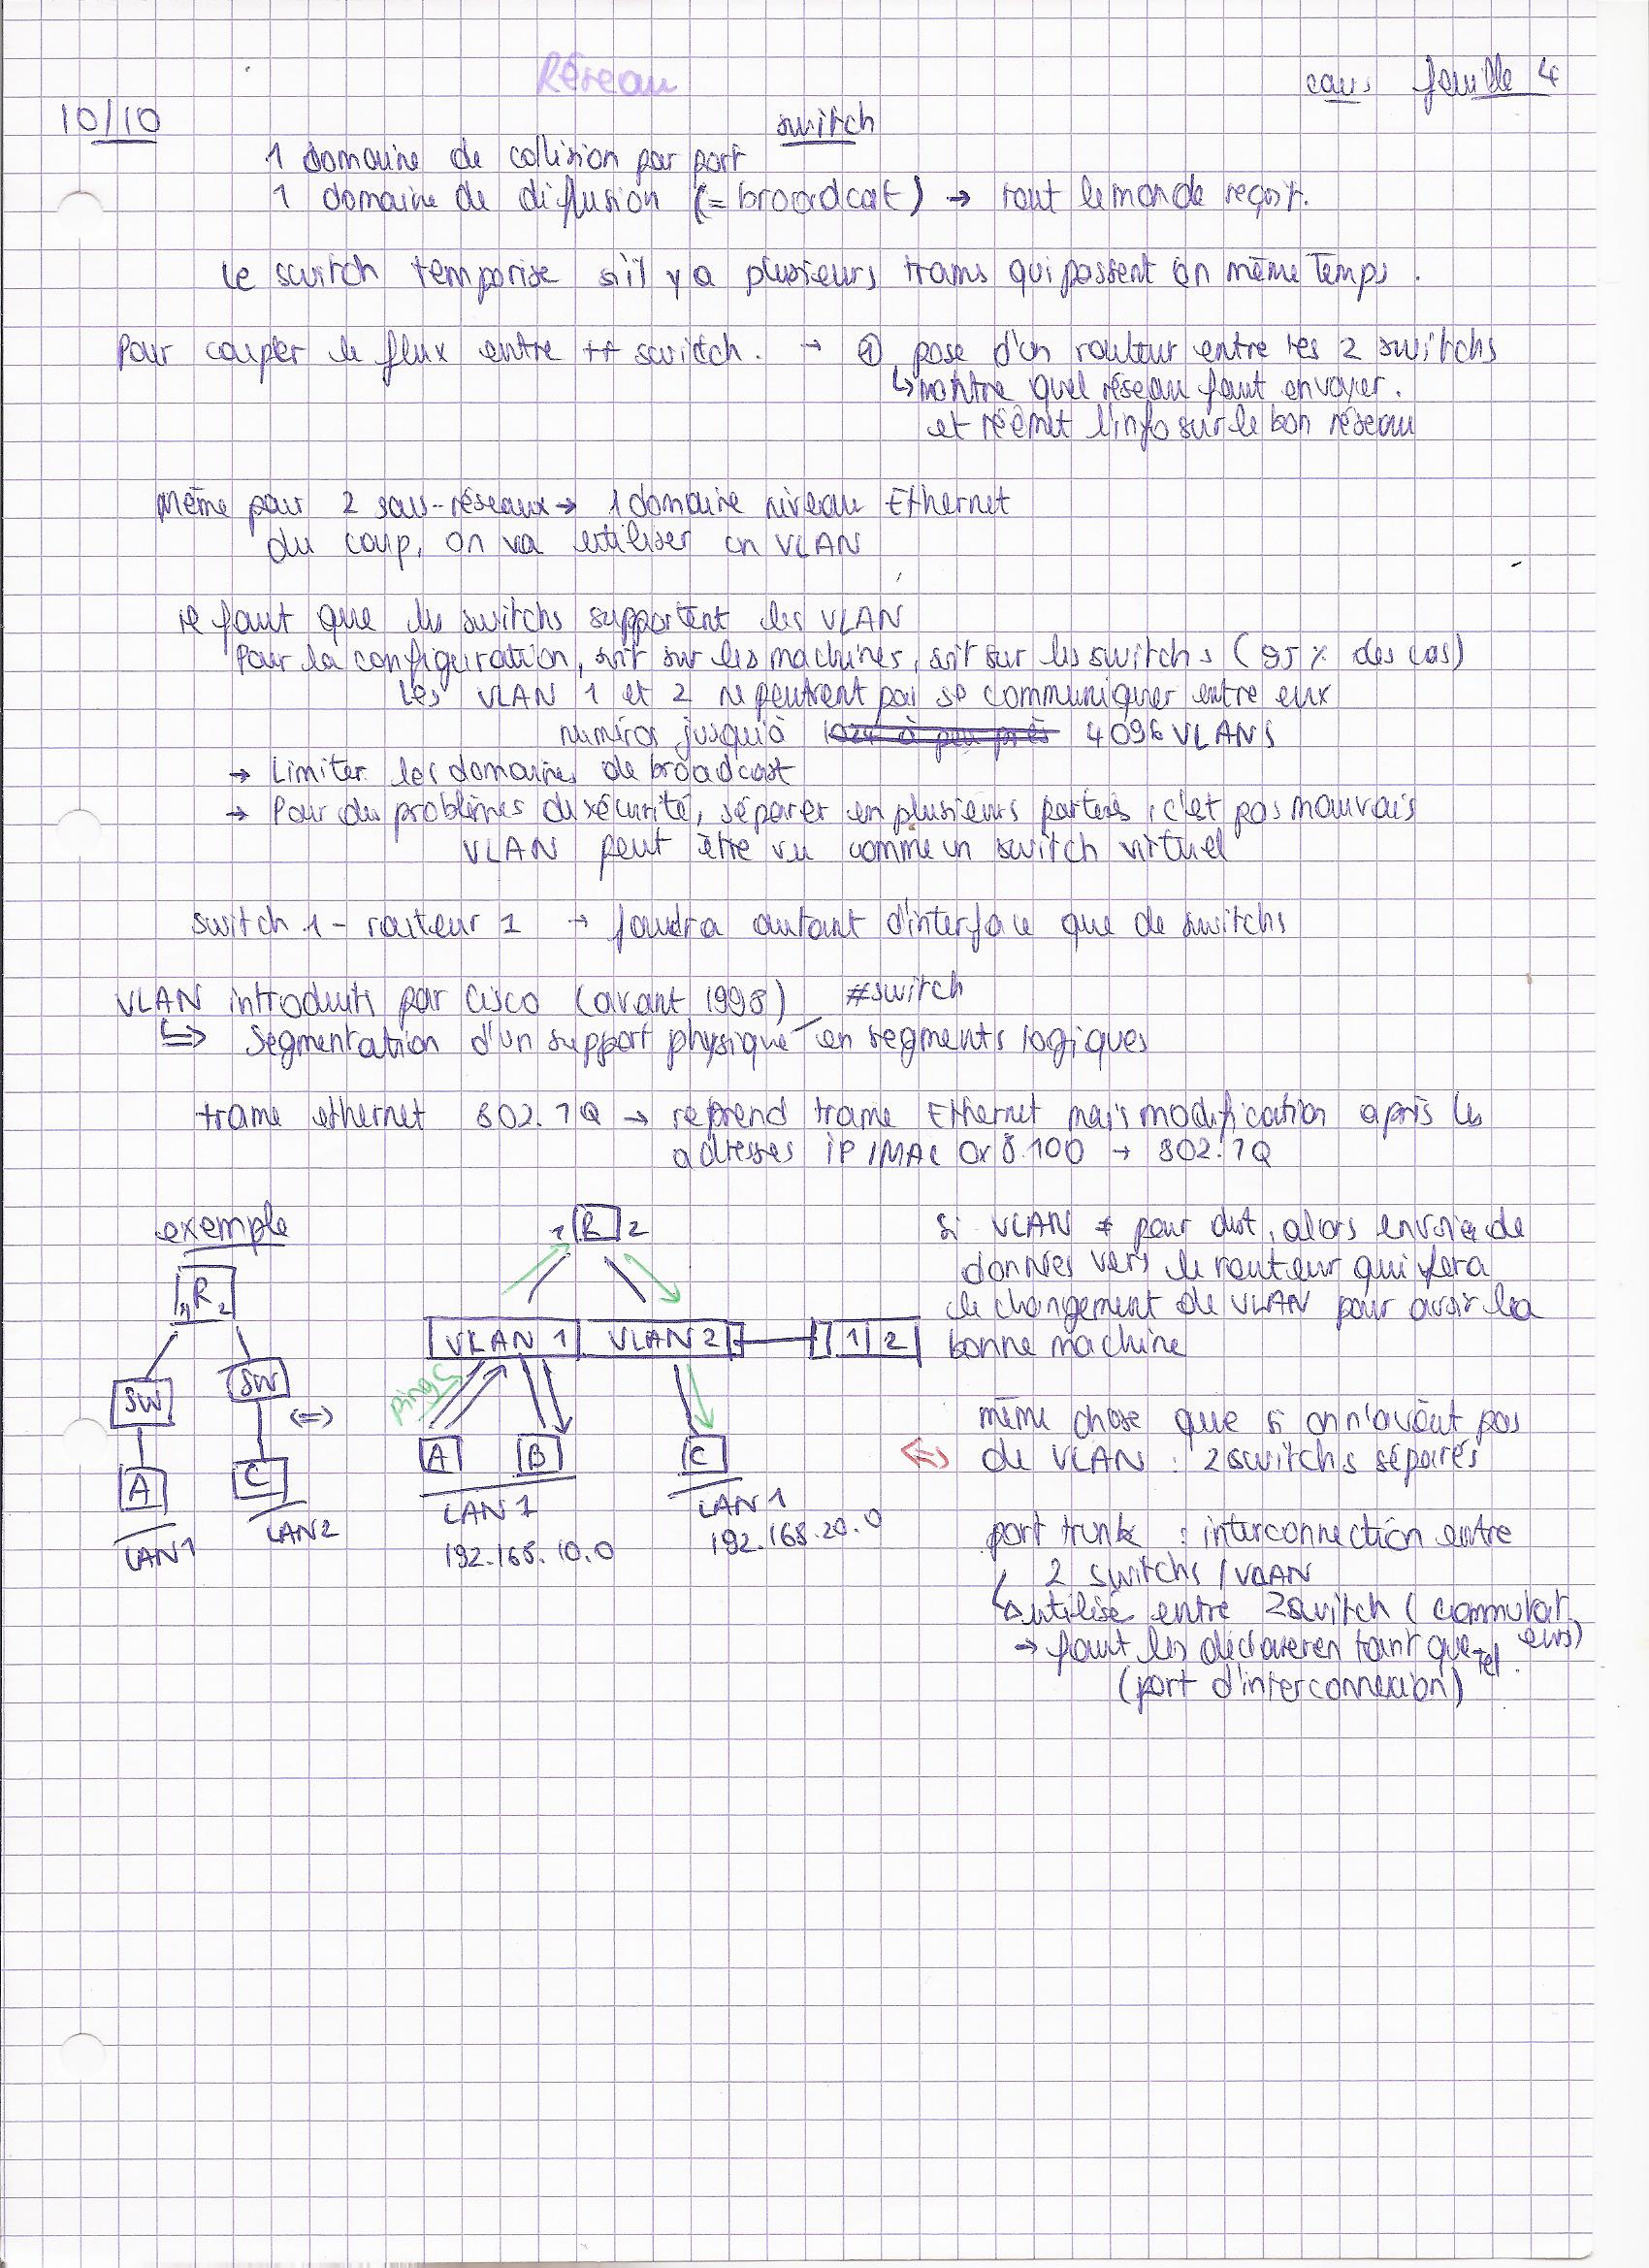 Réseau
cours feuille 4
10/10
switch
1 domaine de collision par port
1 domaine de diffusion (= broadcast) → tout le monde reçoit.
le switch temporise s'il y a plusieurs trams qui passent en même temps.
Pour couper le flux entre ++ switch. → ① pose d'un routeur entre les 2 switchs
↳ montre quel réseau faut envoyer.
et réémet l'info sur le bon réseau
Même pour 2 sous-réseaux → 1 domaine niveau Ethernet
du coup, on va utiliser un VLAN
il faut que les switchs supportent les VLAN
Pour la configuration, soit sur les machines, soit sur les switchs (95 % des cas)
Les VLAN 1 et 2 ne peuvent pas se communiquer entre eux
numéros jusqu'à 1024 à peu près 4096 VLANs
→ Limiter les domaines de broadcast
→ Pour des problèmes de sécurité, séparer en plusieurs parties, c'est pas mauvais
VLAN peut être vu comme un switch virtuel
switch 1 - routeur 1 → faudra autant d'interface que de switchs
VLAN introduits par Cisco (avant 1998) #switch
↳ Segmentation d'un support physique en segments logiques
trame ethernet 802.1Q → reprend trame Ethernet mais modification après les
adresses IP / MAC 0x8.100 → 802.1Q
exemple
1 R 2
SW SW
A C
LAN 1 LAN 2
<=>
1 R 2
VLAN 1 VLAN 2 1 2
ping
A B C
LAN 1 LAN 1
192.168.10.0 192.168.20.0
si VLAN ≠ pour dest, alors envoie de
données vers le routeur qui fera
le changement de VLAN pour avoir la
bonne machine
<=> même chose que si on n'avait pas
de VLAN : 2 switchs séparés
port trunk : interconnection entre
2 switchs / VLAN
↳ utilisé entre 2 switch (commutateurs)
→ faut les déclarer en tant que tel.
(port d'interconnexion)